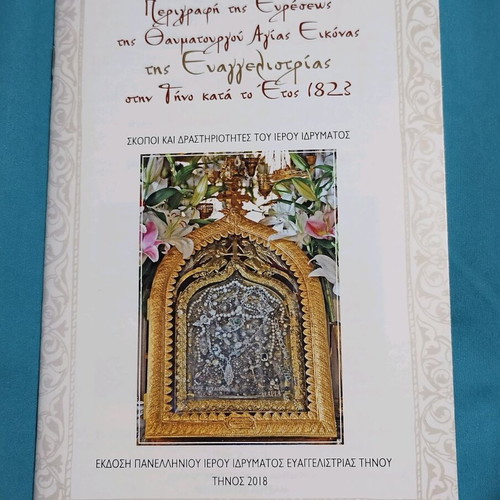 Περιγραφή της Ευρέσεως
της Θαυματουργού Αγίας Εικόνας
της Ευαγγελιστρίας
στην Τήνο κατά το Έτος 1823
ΣΚΟΠΟΙ ΚΑΙ ΔΡΑΣΤΗΡΙΟΤΗΤΕΣ ΤΟΥ ΙΕΡΟΥ ΙΔΡΥΜΑΤΟΣ
ΕΚΔΟΣΗ ΠΑΝΕΛΛΗΝΙΟΥ ΙΕΡΟΥ ΙΔΡΥΜΑΤΟΣ ΕΥΑΓΓΕΛΙΣΤΡΙΑΣ ΤΗΝΟΥ
ΤΗΝΟΣ 2018